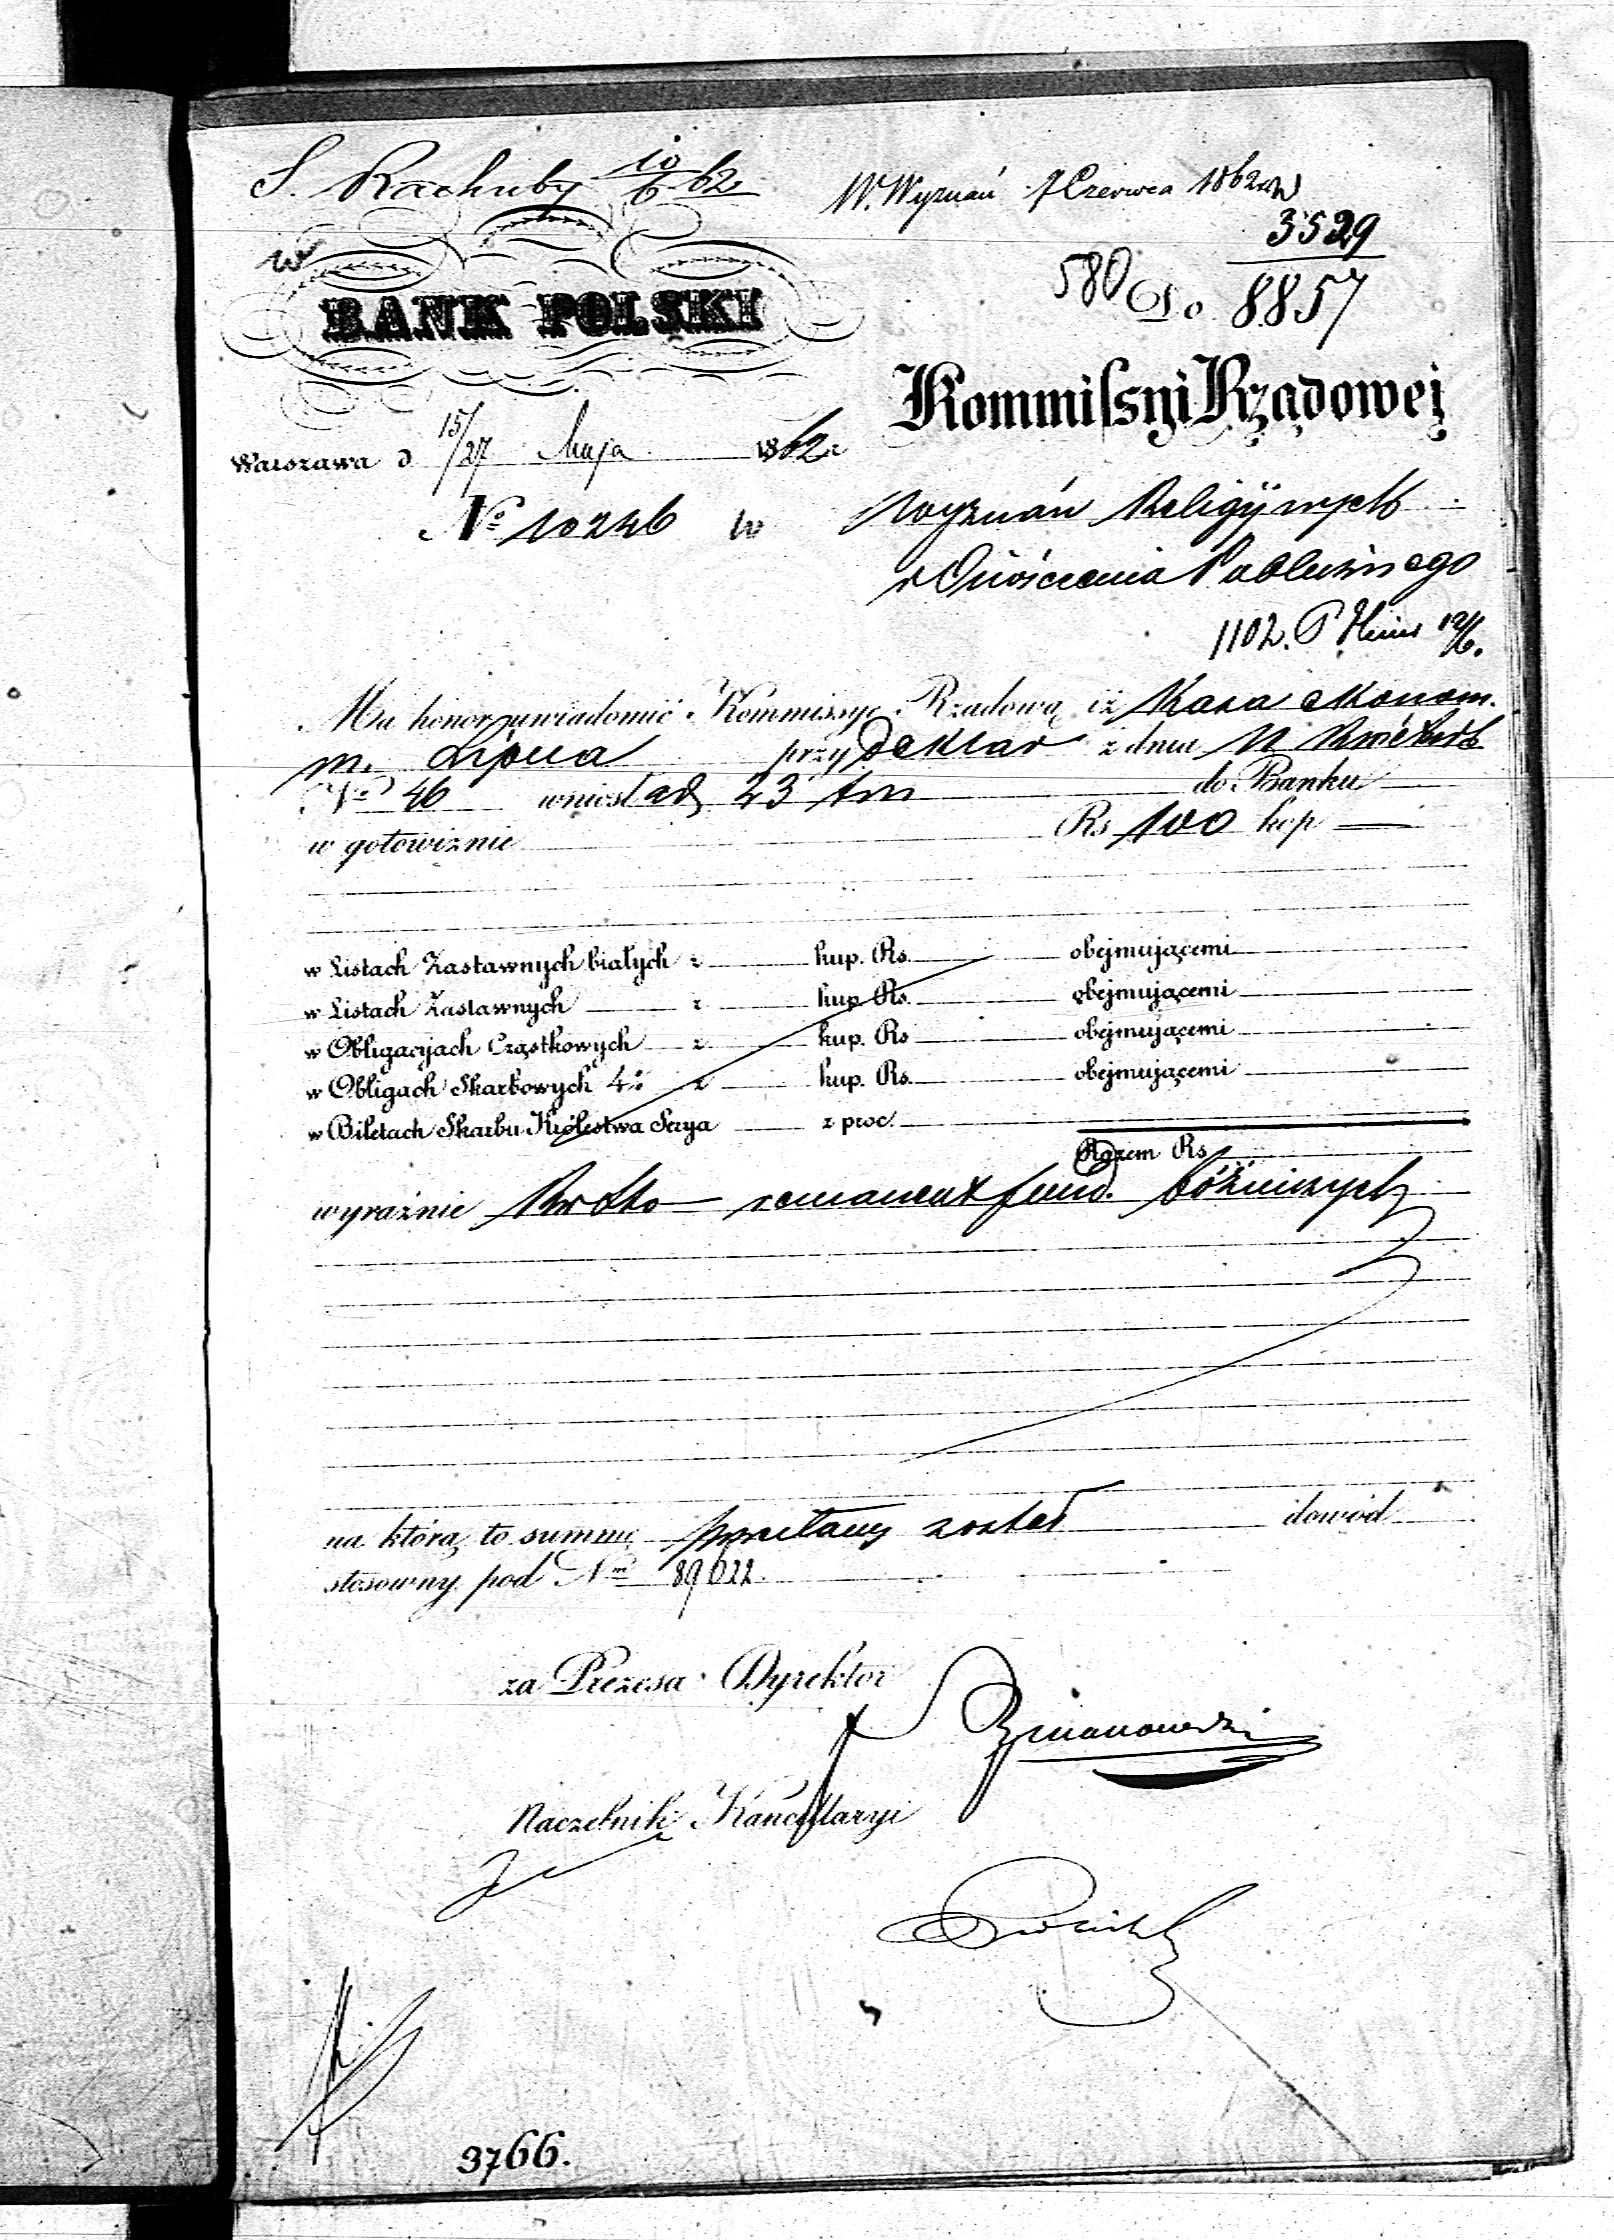 S. Rachuby 10/6 62
W. Wyznań 7 Czerwca 1862
3529
580 Do 8857
w
BANK POLSKI
Kommissyi Rządowej
Warszawa d 15/27 Maja 1862 r
No 10246 w
Wyznań Religijnych
i Oświecenia Publicznego
1102. P 12/6.
Ma honor uwiadomić Kommissyę Rządową iż Kasa ekonom.
m. Lipna przy deklar z dnia Kwietnia
No 46 wniosła d. 23 tm do Banku
w gotowiźnie Rs 100 kop —
w Listach Zastawnych białych z kup. Rs. obejmującemi
w Listach Zastawnych z kup Rs. obejmującemi
w Obligacyach Cząstkowych z kup. Rs obejmującemi
w Obligach Skarbowych 4% z kup. Rs. obejmującemi
w Biletach Skarbu Królestwa Serya z proc.
Razem Rs
wyraźnie Rs Sto remanent fund. bóżniczych
na którą to summę przesłany został dowód
stosowny pod Nm 89622.
za Prezesa Dyrektor
Szymanowski
Naczelnik Kancellaryi
3766.